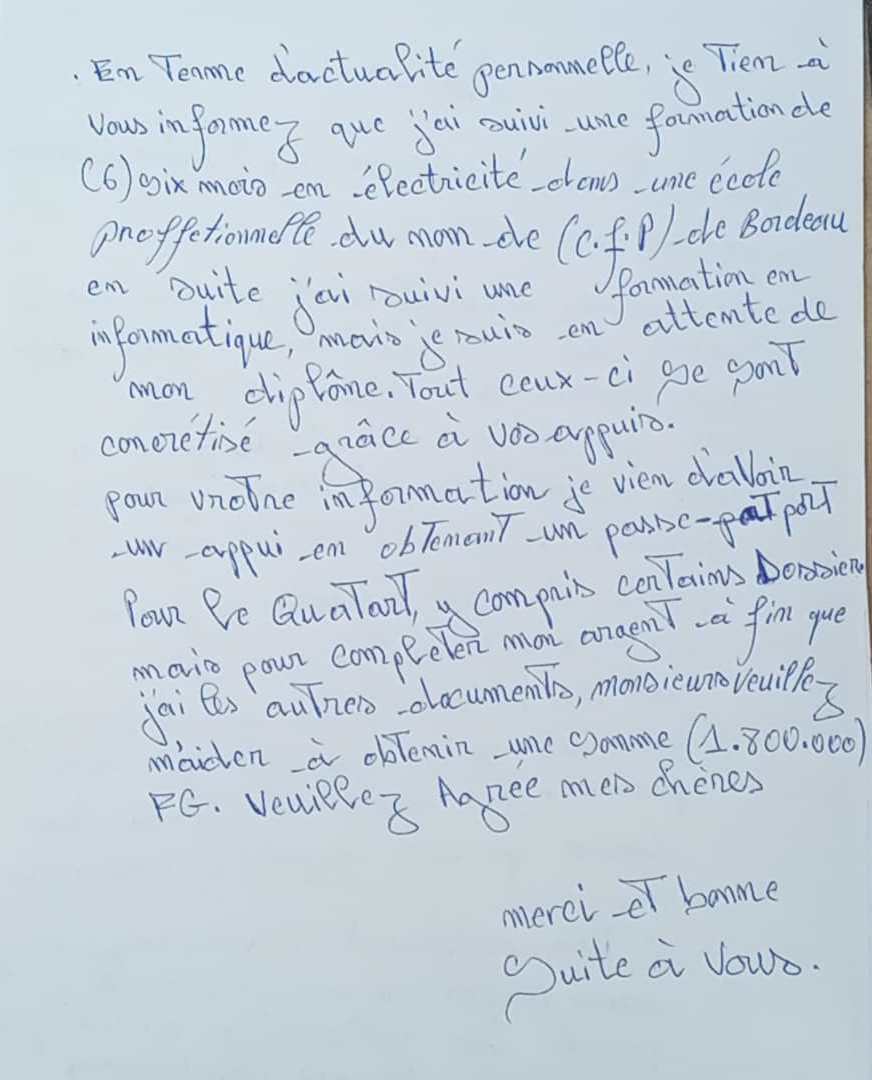 . En Terme d'actualité personnelle, je Tien à
Vous informez que j'ai suivi une formation de
(6) six mois en électricité dans une école
proffetionnelle du nom de (C.f.P) de Bordeau
en suite j'ai suivi une formation en
informatique, mais je suis en attente de
mon diplôme. Tout ceux-ci se sont
concrétisé grâce à vos appuis.
pour vrotre information je vien d'avoir
un appui en obtenant un passe-port
Pour le Quatart, y compris certains Dossier
mais pour compléter mon argent à fin que
j'ai les autres documents, monsieurs veuillez
m'aider à obtenir une somme (1.800.000)
FG. Veuillez Agrée mes chères
merci et bonne
Suite à vous.